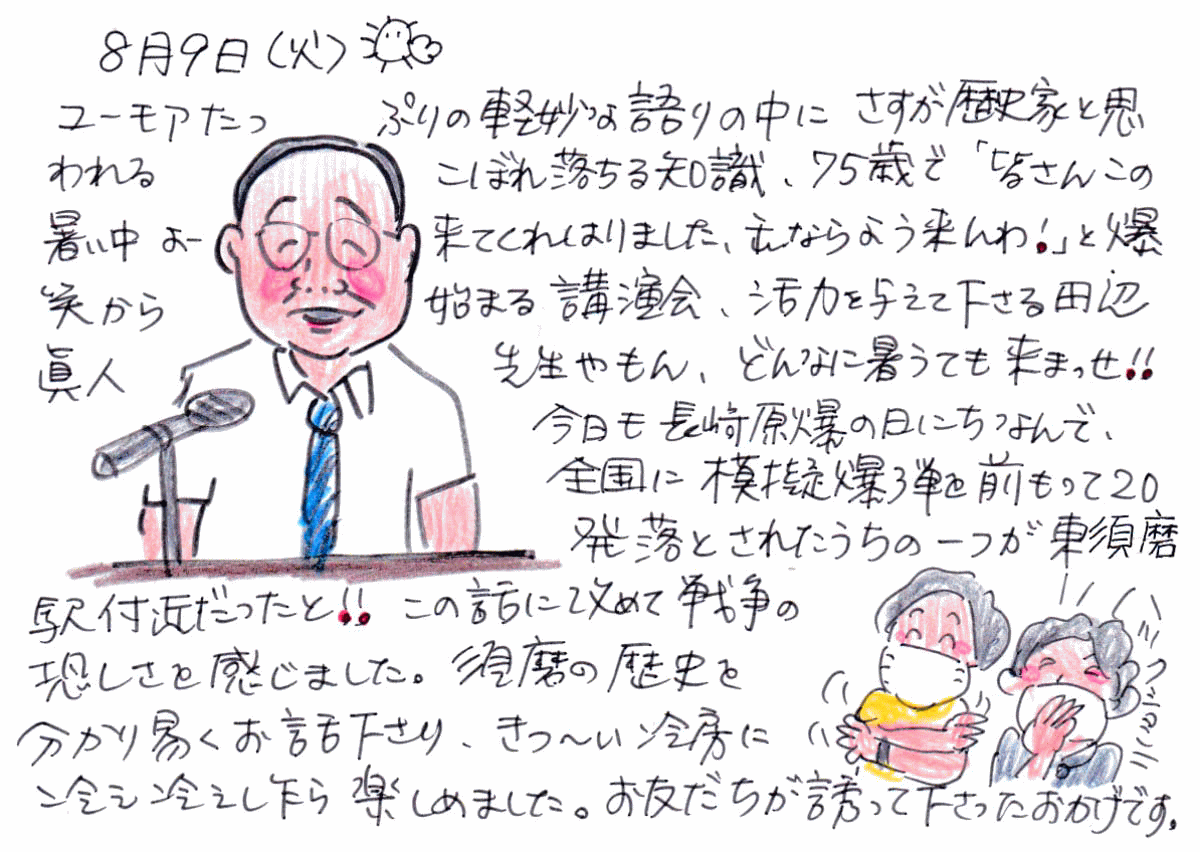 8月9日(火)
ユーモアたっぷりの軽妙な語りの中にさすが歴史家と思
われるこぼれ落ちる知識、75歳で「皆さんこの
暑い中よー来てくれはりました、むならよう来んわ!」と爆
笑から始まる講演会、活力を与えて下さる田辺
眞人先生やもん、どんなに暑うても来まっせ!!
今日も長崎原爆の日にちなんで、
全国に模擬爆弾を前もって20
発落とされたうちの一つが東須磨
駅付近だったと!!この話に改めて戦争の
恐しさを感じました。須磨の歴史を
分かり易くお話下さり、きつ〜い冷房に
冷え冷えし乍ら楽しめました。お友だちが誘って下さったおかげです。